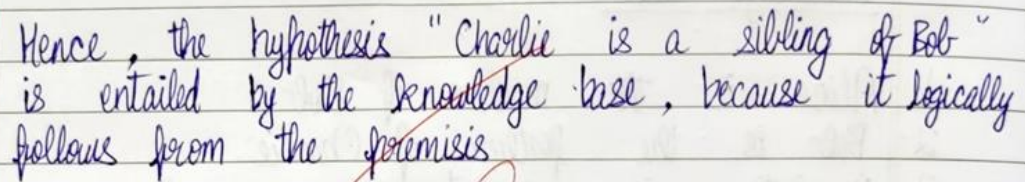 Hence, the hypothesis "Charlie is a sibling of Bob"
is entailed by the knowledge base, because it logically
follows from the premisis